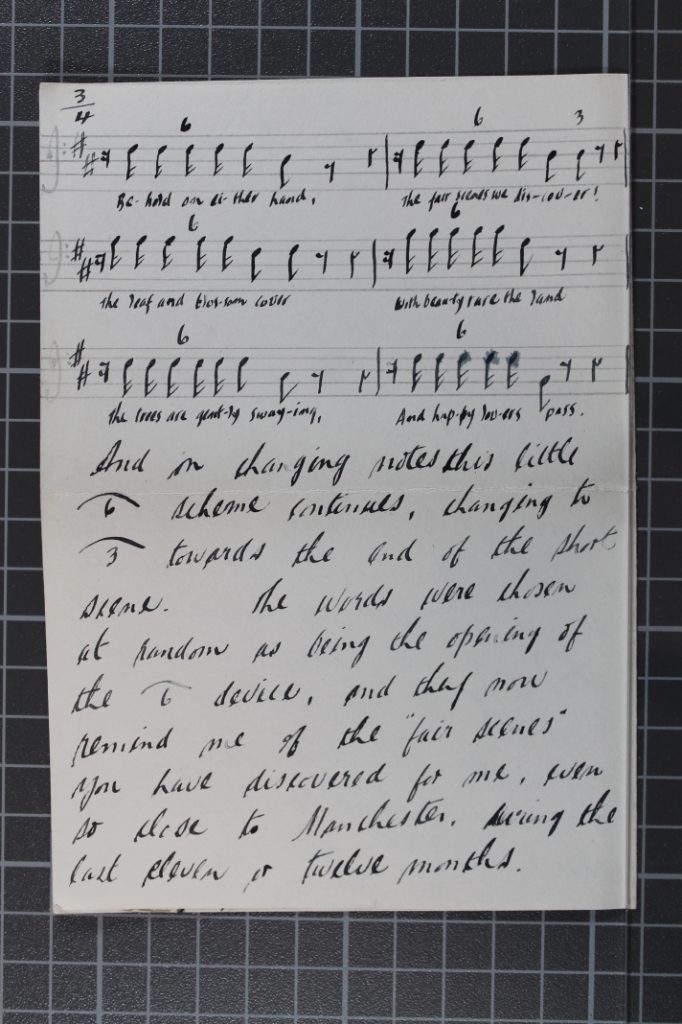 3
4
6 6 3
Be-hold on ei-ther hand, The fair scenes we dis-cov-er!
6 6
The leaf and blos-som cover With beau-ty rare the land
6 6
The trees are gent-ly sway-ing, And hap-py lov-ers pass.
And on changing notes this little
6 scheme continues, changing to
3 towards the end of the short
scene. The words were chosen
at random as being the opening of
the 6 device, and they now
remind me of the "fair scenes"
you have discovered for me, even
so close to Manchester, during the
last eleven or twelve months.